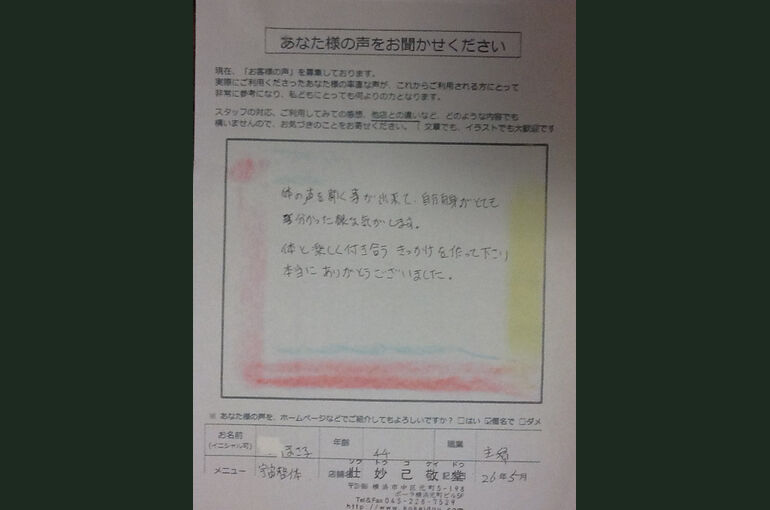 あなた様の声をお聞かせください
現在、「お客様の声」を募集しております。
実際にご利用くださったあなた様の率直な声が、これからご利用される方にとって
非常に参考になり、私どもにとっても何よりの力となります。
スタッフの対応、ご利用してみての感想、他店との違いなど、どのような内容でも
構いませんので、お気づきのことをお寄せください。 文章でも、イラストでも大歓迎です
体の声を聞く事が出来て、自分自身がとても
分かった様な気がします。
体と楽しく付き合う きっかけを作って下さり
本当に ありがとうございました。
※ あなた様の声を、ホームページなどでご紹介してもよろしいですか? □はい ☑匿名で □ダメ
お名前 まさ子 年齢 44 職業 主婦
(イニシャル可)
ソウ トウ コ ケイ ドウ
メニュー 宇宙整体 店舗名 壮 妙 己 敬 堂 記 26年5月
横浜市中区元町5-198
ポーラ横浜元町ビル5F
Tel&Fax 045-228-7529